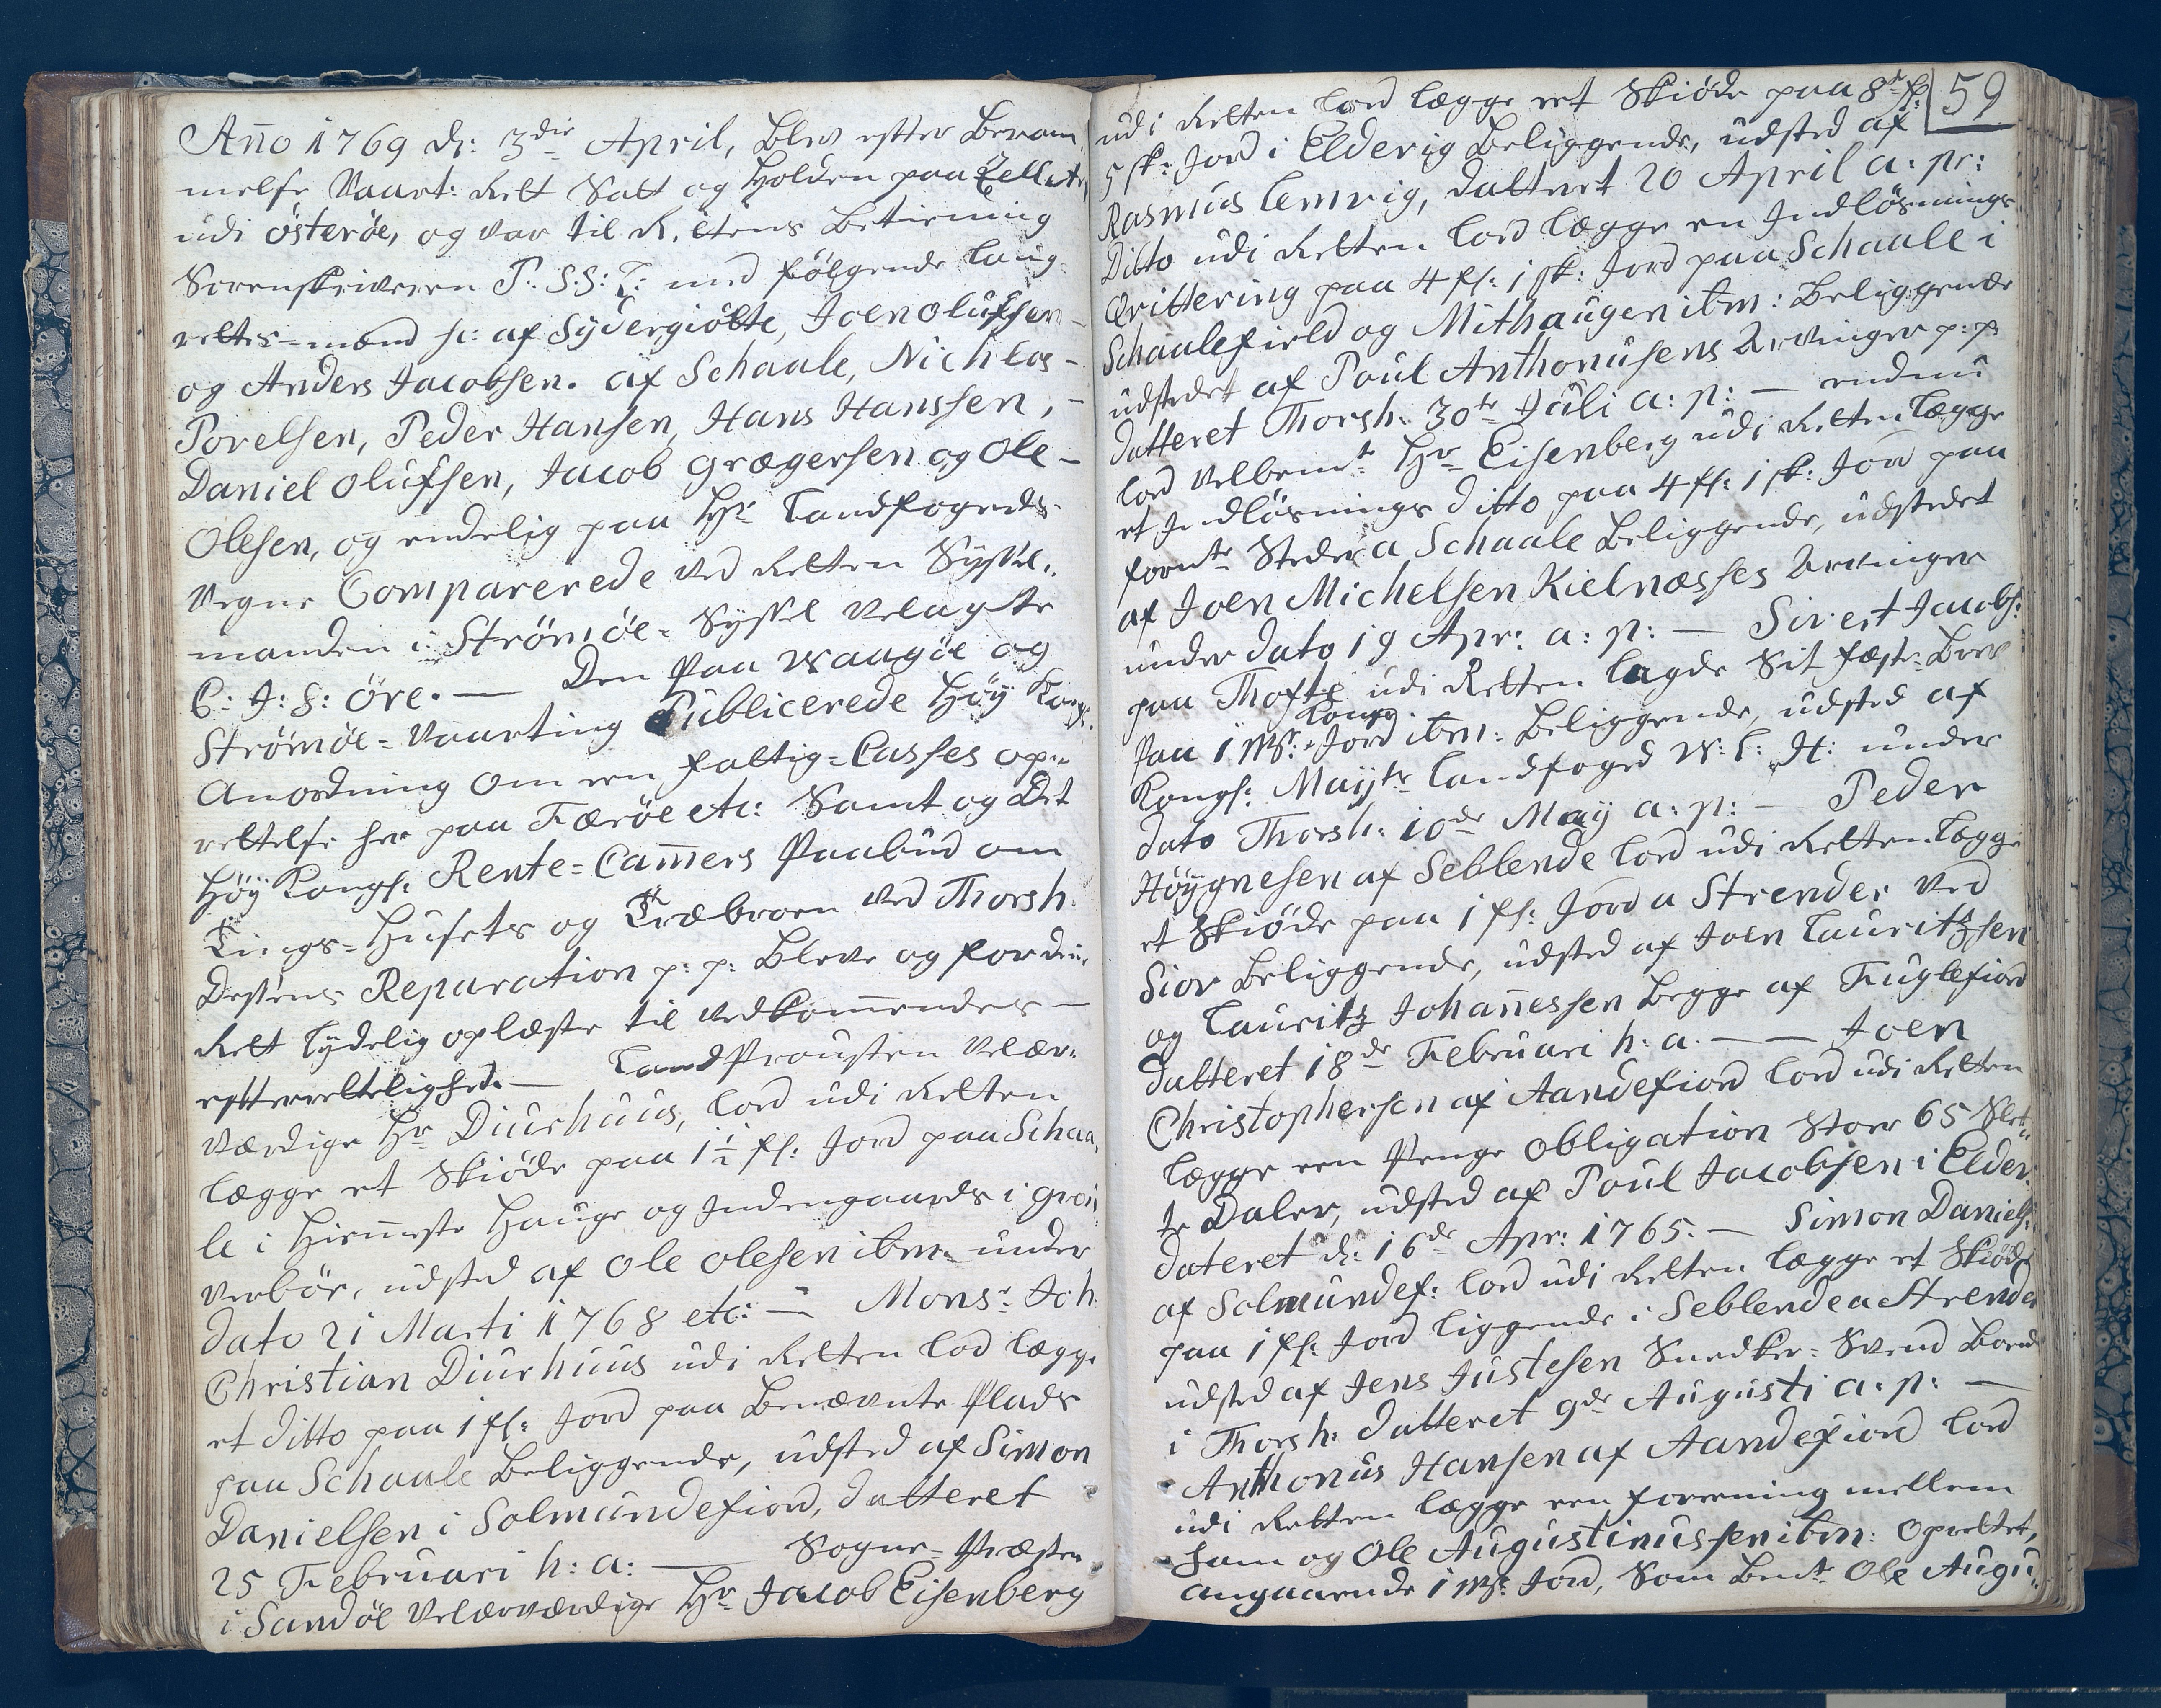 Anno 1769 d: 3die April, blev efter beram
melse Vaart: Rett Satt og Holden paa Sellatr,
udi österöe, og var til Rettens betiening
Sorenskriveren P: S: S: T: med følgende laug
rettes-mænd sc: af Sydergiötte, Joen Olufsen
og Anders Jacobsen. af Schaale, Nichlas-
Povelsen, Peder Hansen, Hans Hanssen, -
Daniel Olufsen, Jacob Grægersen og Ole-
Olesen, og endelig paa Hr Landfogeds
Vegne Comparerede ved Retten Syssel,
manden i Strömöe-Syssel velagte
C: J: S: Öre. — Den paa Waagöe og
Strömöe-Vaarting Publicerede Höÿ Kongl.
Anordning om een fattig-Casses op-
rettelse her paa Færöe etc: Samt og det
Höÿ Kongl: Rente-Camers Paabud om
Tings-Husets og Træbroen ved Thorsh.
Dessens Reparation p: p: bleve og for den,
Rett lydelig oplæste til vedkommendes —
efterrettelighed. — LandProusten velær-
værdige Hr Diurhuus, lod udi Retten
lægge et Skiöde paa 1½ fl: Jord paa Schaa,
le i Hiemeste Hauge og Indengaards i
verbör, udsted af Ole Olesen ibm: under
dato 21 Marti 1768 etc: — Monsr: Joh
Christian Diurhuus udi Retten lod lægge
et ditto paa 1 fl: Jord paa benævnte Plads
paa Schaale beliggende, udsted af Simon
Danielsen i Solmundefiord, datteret
25 Februari h: a: — Sogne-Præsten
i Sandöe velærværdige Hr Jacob Eisenberg
59
udi Retten lod lægge et Skiöde paa 8te fl:
5 sk: Jord i Elderig beliggende, udsted af
Rasmus Lemvig, datteret 20 April a: pr:
Ditto udi Retten lod lægge en Indlösnings
Qvittering paa 4 fl: 1 sk: Jord paa Schaale i
Schaalefield og Mithaugen ibm: beliggende
udstedet af Poul Anthonusens Arvinger p: p
datteret Thorsh: 30te Juli a: p: — endnu
lod velbemte Hr Eisenberg udi Retten lægge
et Indlösnings ditto paa 4 fl: 1 sk: Jord paa
fornte Steder a Schaale beliggende, udstedet
af Joen Michelsen Kielnæsses Arvinger
under dato 19 Apr: a: p: — Sivert Jacobs:
paa Thofte udi Retten lagde Sit fæste-brev
paa 1 Mk: Kongs Jord ibm: beliggende, udsted af
Kongl: Mayts Landfoged W: L: H: under
dato Thorsh: 10de Maÿ a: p: — Peder
Höÿgnesen af Seblende lod udi Retten lægge
et Skiöde paa 1 fl: Jord a Strender ved
Siov beliggende, udsted af Joen Lauritzsen
og Lauritz Johannessen begge af Fuglefiord
datteret 18de Februari h: a. — — Joen
Christophersen af Aandefiord lod udi Retten
lægge een Penge Obligation stoer 65 Slet-
te Daler, udsted af Poul Jacobsen i Elder
dateret d: 16de Apr: 1765. — Simon Daniels:
af Solmundef: lod udi Retten lægge et Skiöde
paa 1 fl: Jord liggende i Seblende a Strender
udsted af Jens Justesen Snedker-Svend boende
i Thorsh: datteret 9de Augusti a: p: —
Anthonus Hansen af Aandefiord lod
udi Retten lægge een foreening mellem
ham og Ole Augustinussen ibm: oprettet,
angaaende 1 Mk: Jord, som bemte Ole Augu-